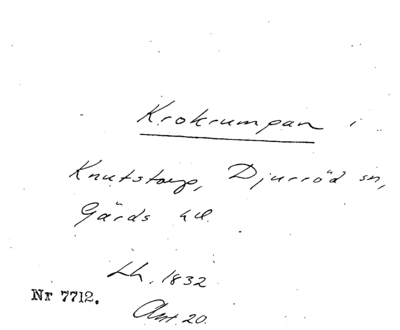 Krokrumpan i
Knutstorp, Djurröd sn,
Gärds hd.
Lh. 1832
Nr 7712.
Ant. 20.